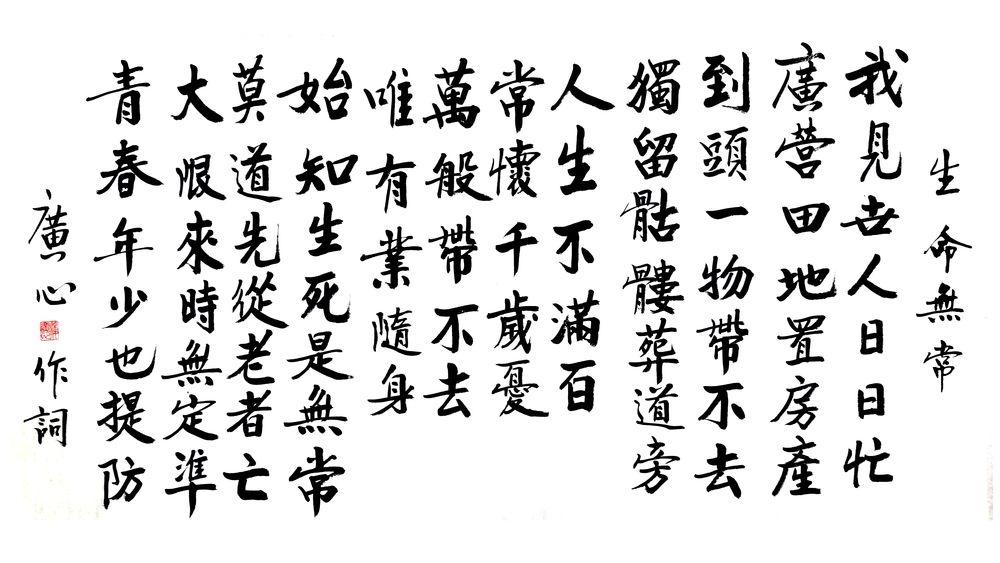 生命無常
我見世人日日忙
廣營田地置房產
到頭一物帶不去
獨留骷髏葬道旁
人生不滿百
常懷千歲憂
萬般帶不去
唯有業隨身
始知生死是無常
莫道先從老者亡
大限來時無定準
青春年少也提防
廣心
作詞